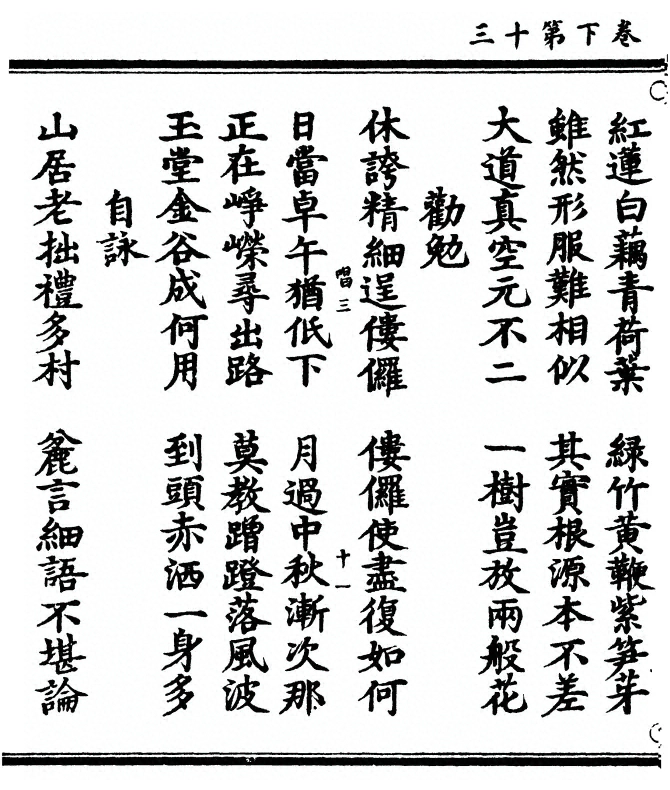 卷下第十三
紅蓮白藕青荷葉　綠竹黃鞭紫笋芽
雖然形服難相似　其實根源本不差
大道真空元不二　一樹豈放兩般花
勸勉
休誇精細逞僂儸　僂儸使盡復如何
唱三　十一
日當卓午猶低下　月過中秋漸次那
正在崢嶸尋出路　莫教蹭蹬落風波
玉堂金谷成何用　到頭赤洒一身多
自詠
山居老拙禮多村　麄言細語不堪論